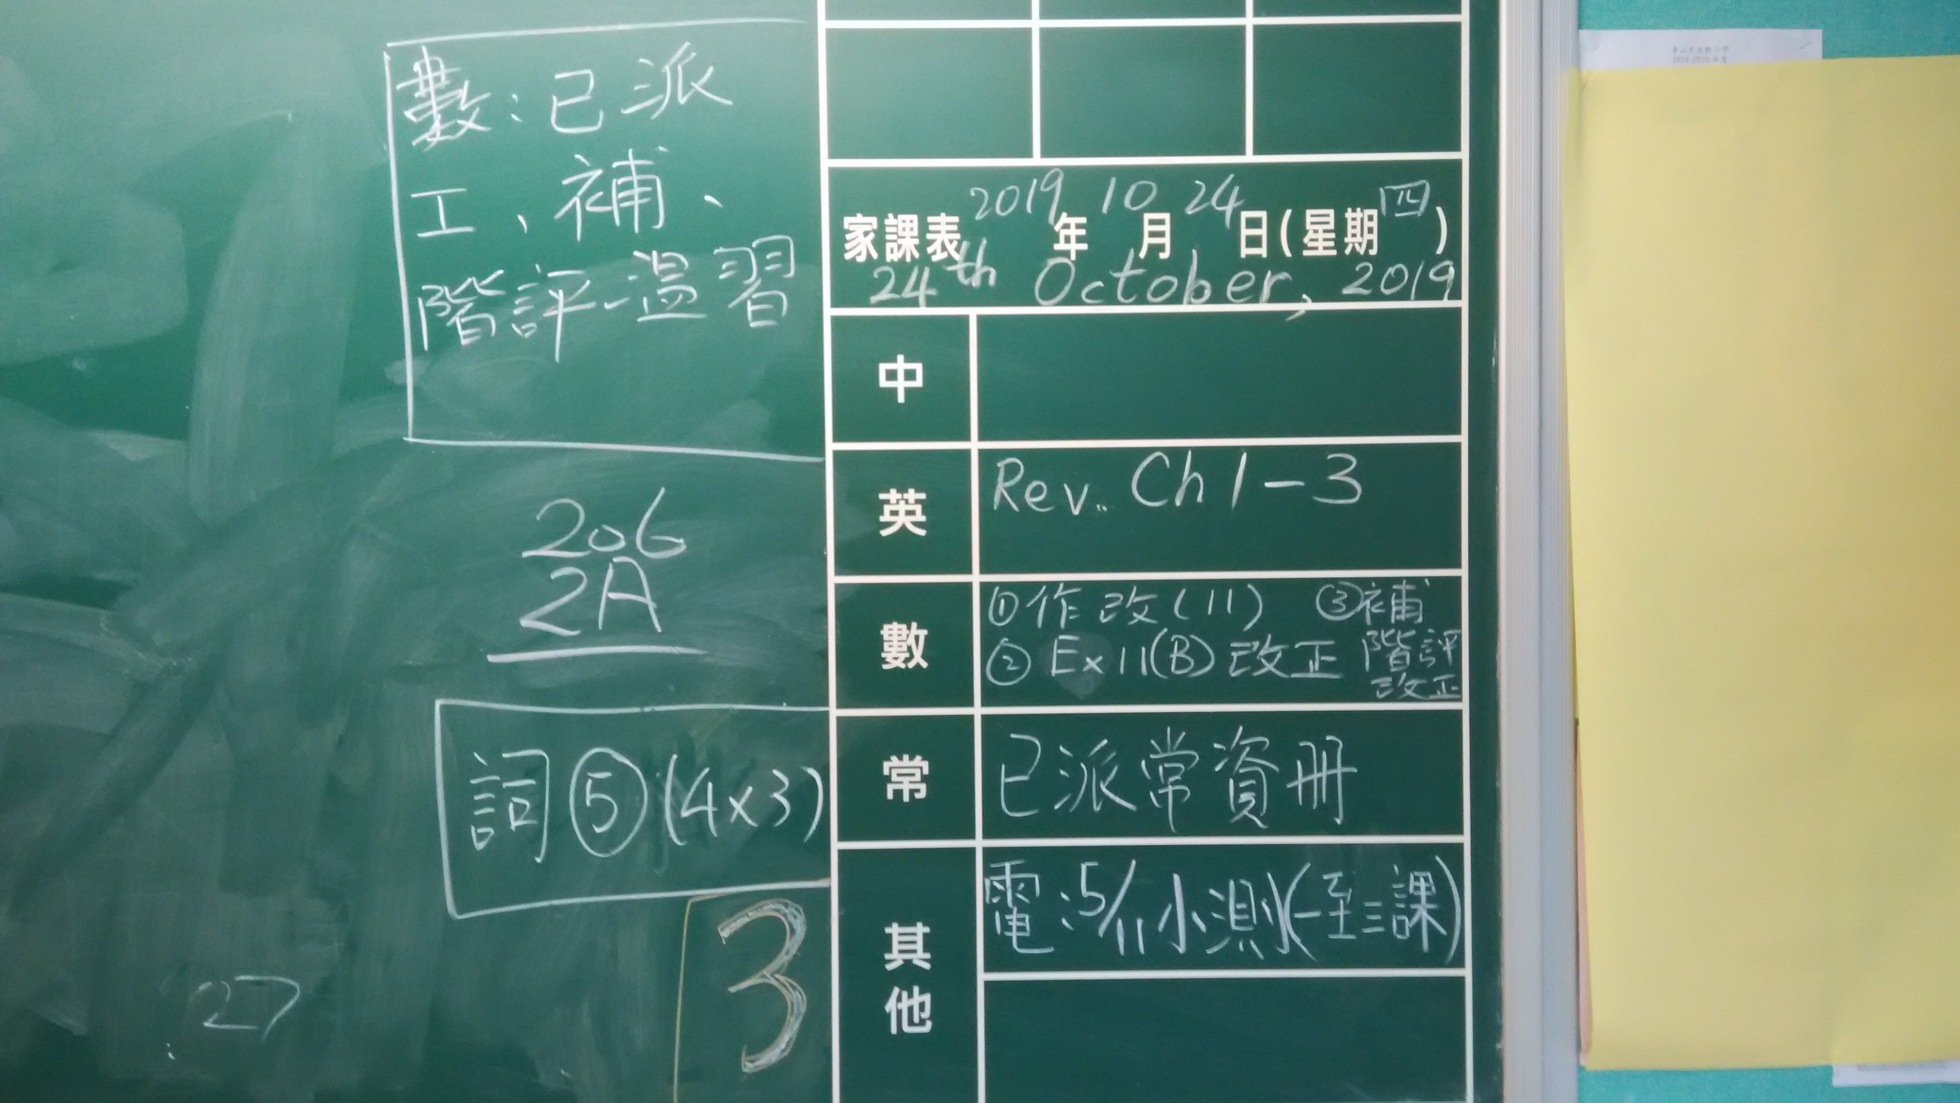 數：已派
工、補、
階評溫習
206
2A
詞⑤(4x3)
3
27
家課表 2019年10月24日(星期四)
24th October, 2019
中
英
Rev. Ch 1-3
數
①作改(11) ③補
②Ex11(B)改正 階評
改正
常
已派常資冊
其他
電：5/11小測(一至三課)